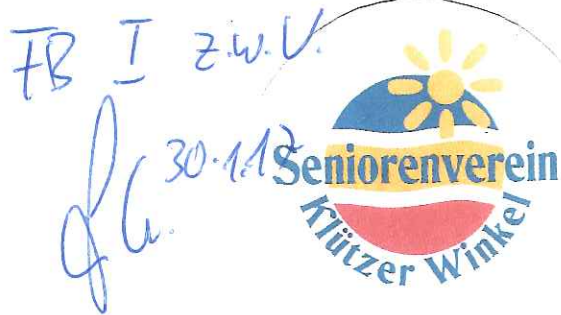 FB I z.w.V.
30.1.17
Seniorenverein
Klützer Winkel